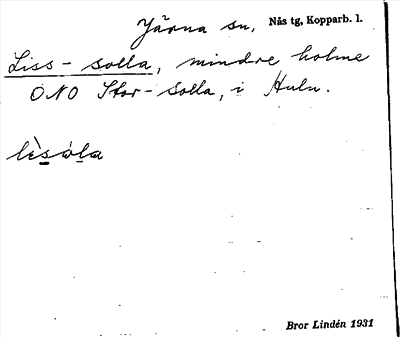 Järna sn, Nås tg, Kopparb. l.
Liss-solla, mindre holme
ONO Stor-Solla, i Huln.
lèsòla
Bror Lindén 1931